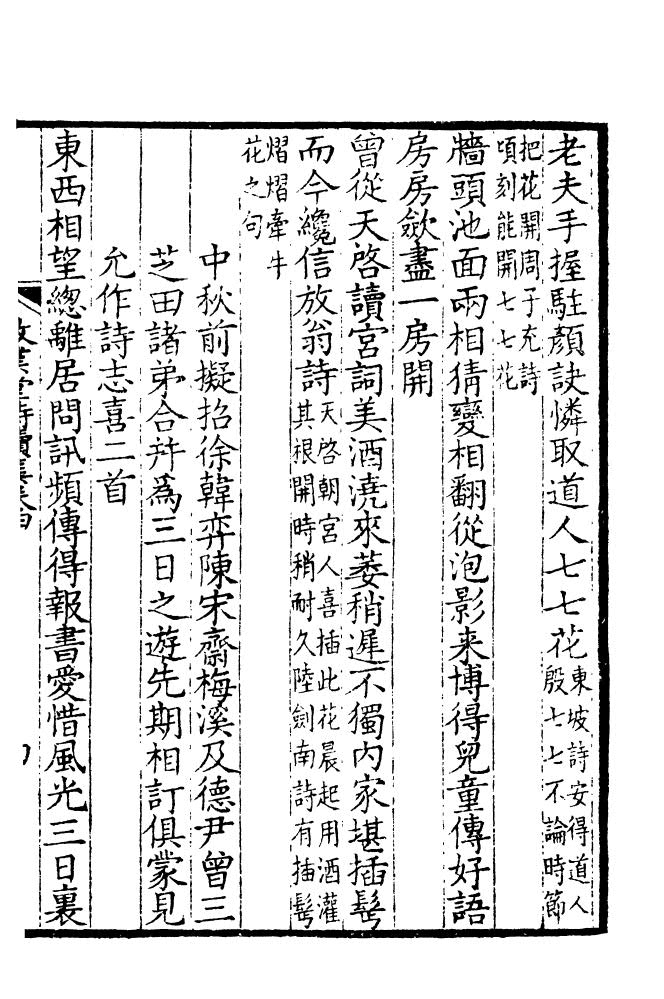 老夫手握駐顏訣憐取道人七七花東坡詩安得道人殷七七不論時節
把花開周子充詩頃刻能開七七花
牆頭池面兩相猜變相翻從泡影来博得兒童傳好語
房房歛盡一房開
曾從天啓讀宮詞美酒澆來萎稍遲不獨内家堪插髩
而今纔信放翁詩天啓朝宮人喜插此花晨起用酒灌其根開時稍耐久陸劍南詩有插髩
熠熠牽牛花之句
中秋前擬招徐韓弈陳宋齋梅溪及德尹曾三
芝田諸弟合并為三日之遊先期相訂俱蒙見
允作詩志喜二首
東西相望總離居問訊頻傳得報書愛惜風光三日裏